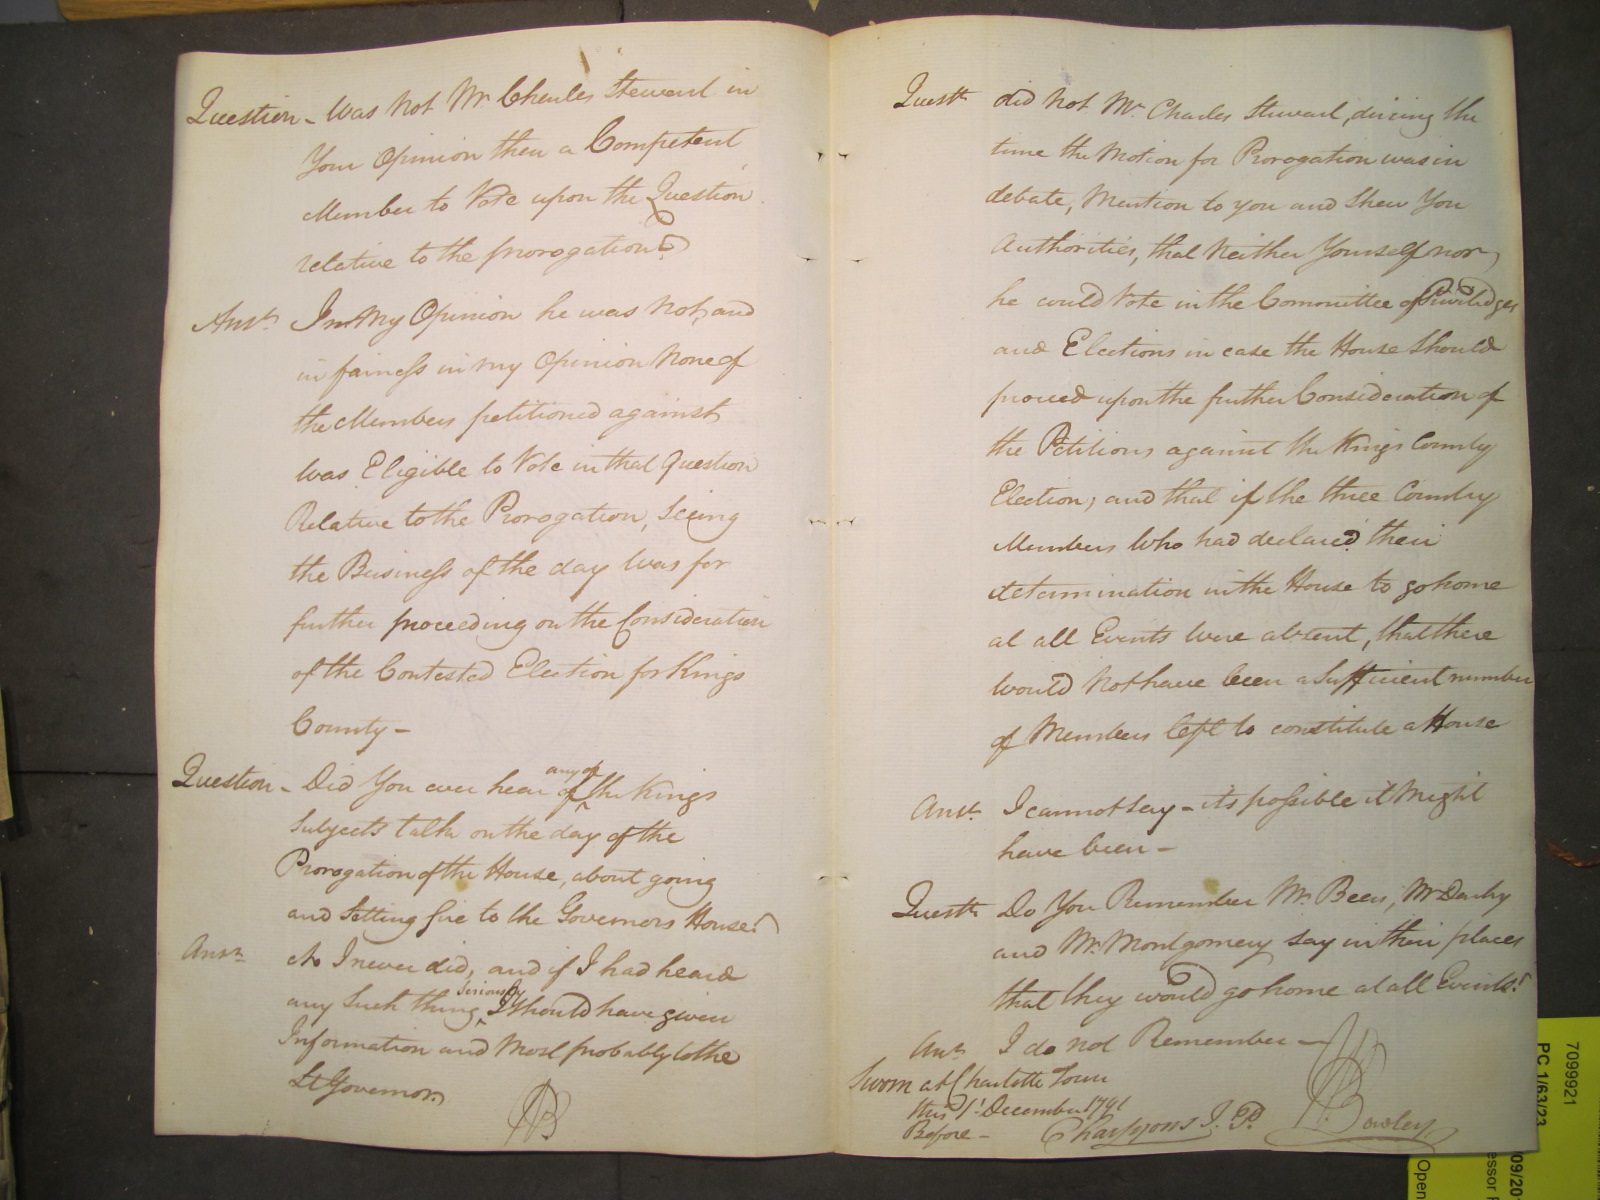 Question - Was Not Mr Charles Stewart in
Your Opinion then a Competent
Member to Vote upon the Question
relative to the prorogation?
Ansr. In My Opinion he was Not, and
in fairness in my Opinion None of
the Members petitioned against
Was Eligible to Vote in that Question
Relative to the Prorogation, Seeing
the Business of the day was for
further proceeding on the Consideration
of the Contested Election for Kings
County -
Question - Did You ever hear of any of the Kings
Subjects talk on the day of the
Prorogation of the House, about going
and Setting fire to the Governors House?
Ansr. No I never did, and if I had heard
any Such thing Seriously I should have given
Information and Most probably to the
Lt Governor
Questn did Not Mr. Charles Stewart, during the
time the Motion for Prorogation was in
debate, Mention to you and Shew You
Authorities, that Neither Yourself nor
he could Vote in the Committee of Priviledges
and Elections in case the House Should
proceed upon the further Consideration of
the Petitions against the Kings County
Election; and that if the three Country
Members Who had declared their
determination in the House to go home
at all Events Were absent, that there
Would Not have been a Sufficient number
of Members left to constitute a House
Ansr. I cannot say - its possible it Might
have been -
Questn Do You Remember Mr. Beers, Mr Darby
and Mr. Montgomery Say in their places
that they would go home at all Events?
Ansr. I do not Remember -
Sworn at Charlotte Town
this 1st December 1791
Before -
J. P.
7099921
PC 1/63/23